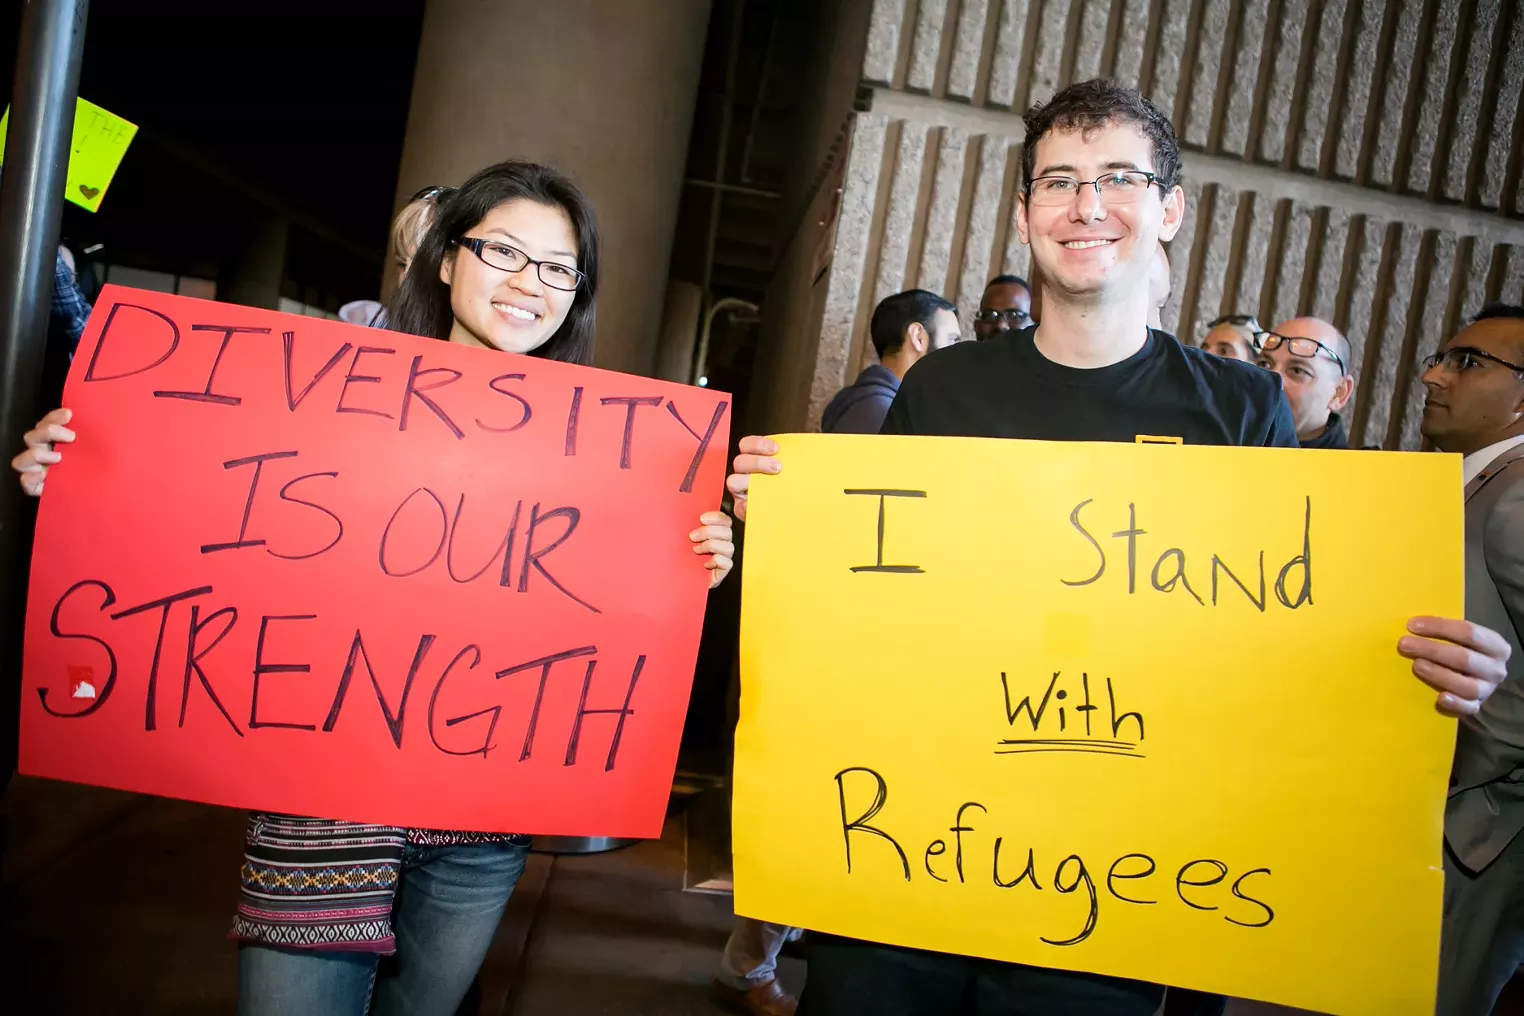 THE
!
DIVERSITY
IS OUR
STRENGTH
I Stand
With
Refugees